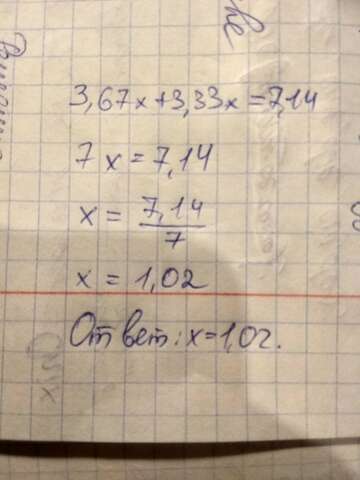 3,67x+3,33x=7,14
7x=7,14
x=7,14/7
x=1,02
Ответ: x=1,02.